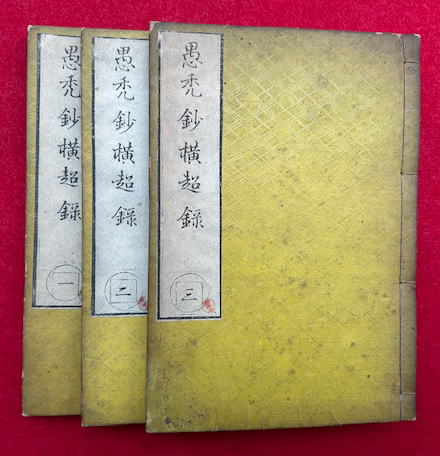 愚禿鈔横超録 三
愚禿鈔横超録 二
愚禿鈔横超録 一